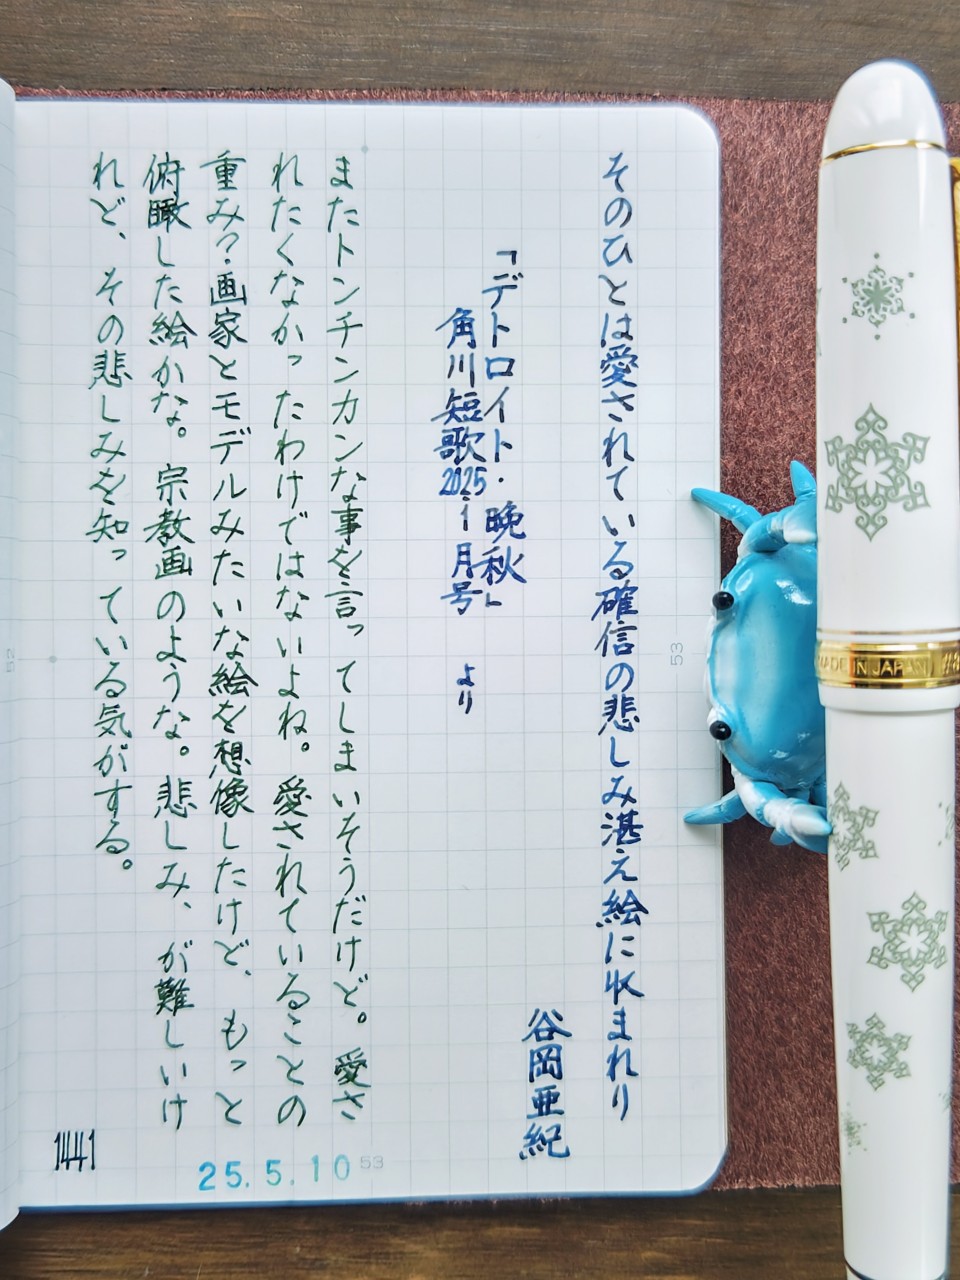 そのひとは愛されている確信の悲しみ湛え絵に収まれり
谷岡亜紀
「デトロイト・晩秋」
角川短歌2025・1月号 より
またトンチンカンな事を言ってしまいそうだけど。愛さ
れたくなかったわけではないよね。愛されていることの
重み?画家とモデルみたいな絵を想像したけど、もっと
俯瞰した絵かな。宗教画のような。悲しみ、が難しいけ
れど、その悲しみを知っている気がする。
1441
25.5.10
53
53
52
MADE IN JAPAN